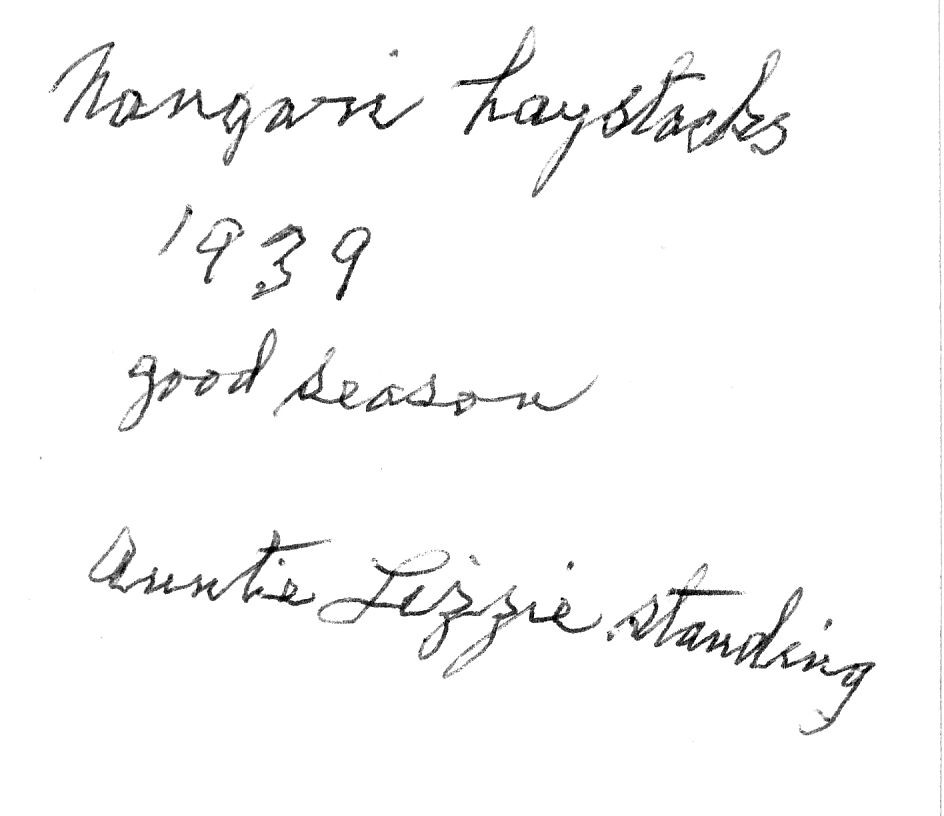 Nangari haystacks
1939
good season
Auntie Lizzie standing